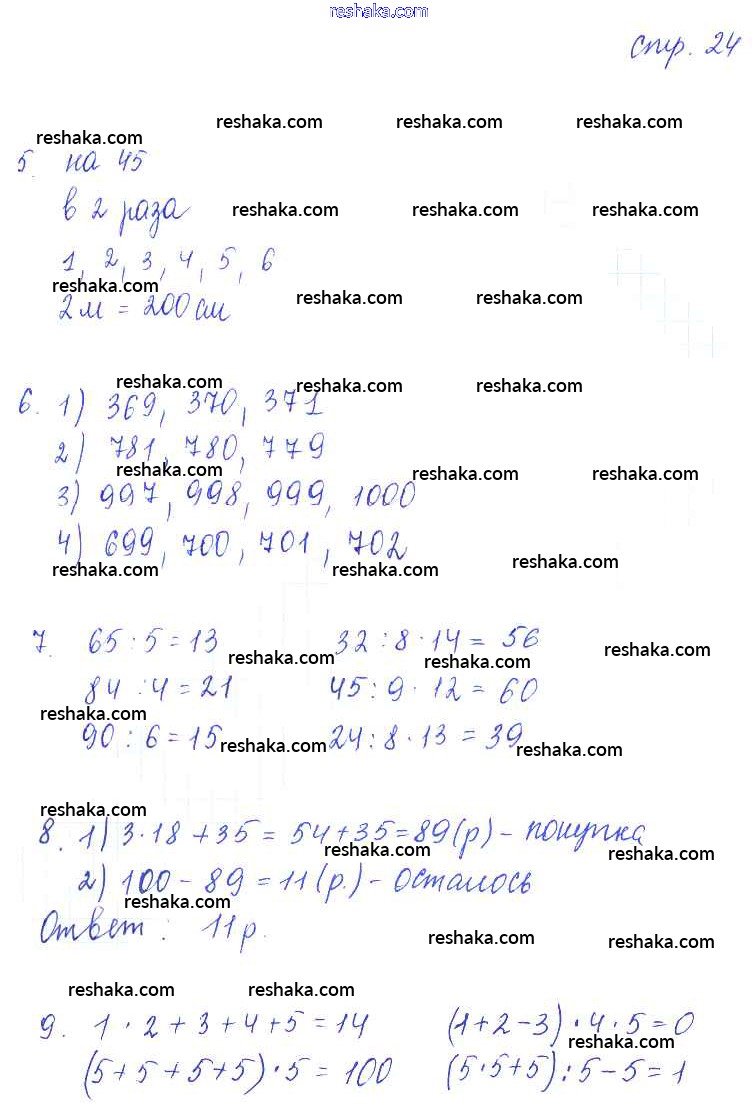 reshaka.com
стр. 24
reshaka.com reshaka.com reshaka.com
reshaka.com
5. на 45
в 2 раза
reshaka.com reshaka.com reshaka.com
1, 2, 3, 4, 5, 6
reshaka.com reshaka.com reshaka.com
2 м = 200 см
reshaka.com reshaka.com reshaka.com
6. 1) 369, 370, 371
2) 781, 780, 779
reshaka.com reshaka.com reshaka.com
3) 997, 998, 999, 1000
4) 699, 700, 701, 702
reshaka.com reshaka.com reshaka.com
7. 65 : 5 = 13 32 : 8 · 14 = 56
reshaka.com reshaka.com reshaka.com
84 : 4 = 21 45 : 9 · 12 = 60
reshaka.com
90 : 6 = 15 24 : 8 · 13 = 39
reshaka.com reshaka.com
reshaka.com
8. 1) 3 · 18 + 35 = 54 + 35 = 89 (р) - покупка
reshaka.com reshaka.com
2) 100 - 89 = 11 (р.) - осталось
reshaka.com
Ответ: 11 р.
reshaka.com reshaka.com
reshaka.com reshaka.com
9. 1 · 2 + 3 + 4 + 5 = 14 (1 + 2 - 3) · 4 · 5 = 0
reshaka.com
(5 + 5 + 5 + 5) · 5 = 100 (5 · 5 + 5) : 5 - 5 = 1